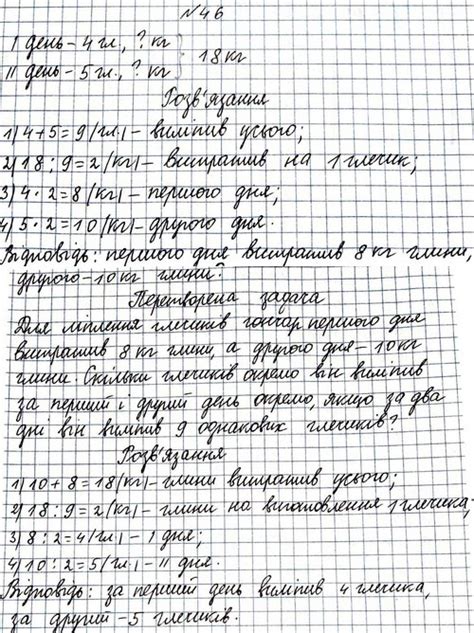 №46
I день – 4 гл., ? кг } 18 кг
II день – 5 гл., ? кг
Розв'язання
1) 4+5=9 (гл.) – виліпив усього;
2) 18:9=2 (кг) – витратив на 1 глечик;
3) 4·2=8 (кг) – першого дня;
4) 5·2=10 (кг) – другого дня.
Відповідь: першого дня витратив 8 кг глини,
другого – 10 кг глини?
Перетворена задача
Для ліплення глечиків гончар першого дня
витратив 8 кг глини, а другого дня – 10 кг
глини. Скільки глечиків окремо він виліпив
за перший і другий день окремо, якщо за два
дні він виліпив 9 однакових глечиків?
Розв'язання
1) 10+8=18 (кг) – глини витратив усього;
2) 18:9=2 (кг) – глини на виготовлення 1 глечика;
3) 8:2=4 (гл.) – I дня;
4) 10:2=5 (гл.) – II дня.
Відповідь: за перший день виліпив 4 глечика,
за другий – 5 глечиків.